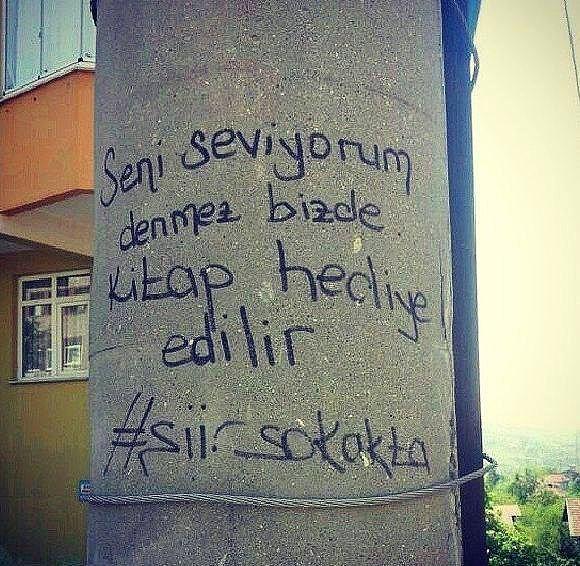 Seni seviyorum
denmez bizde
kitap hediye
edilir
#şiir_sokakta